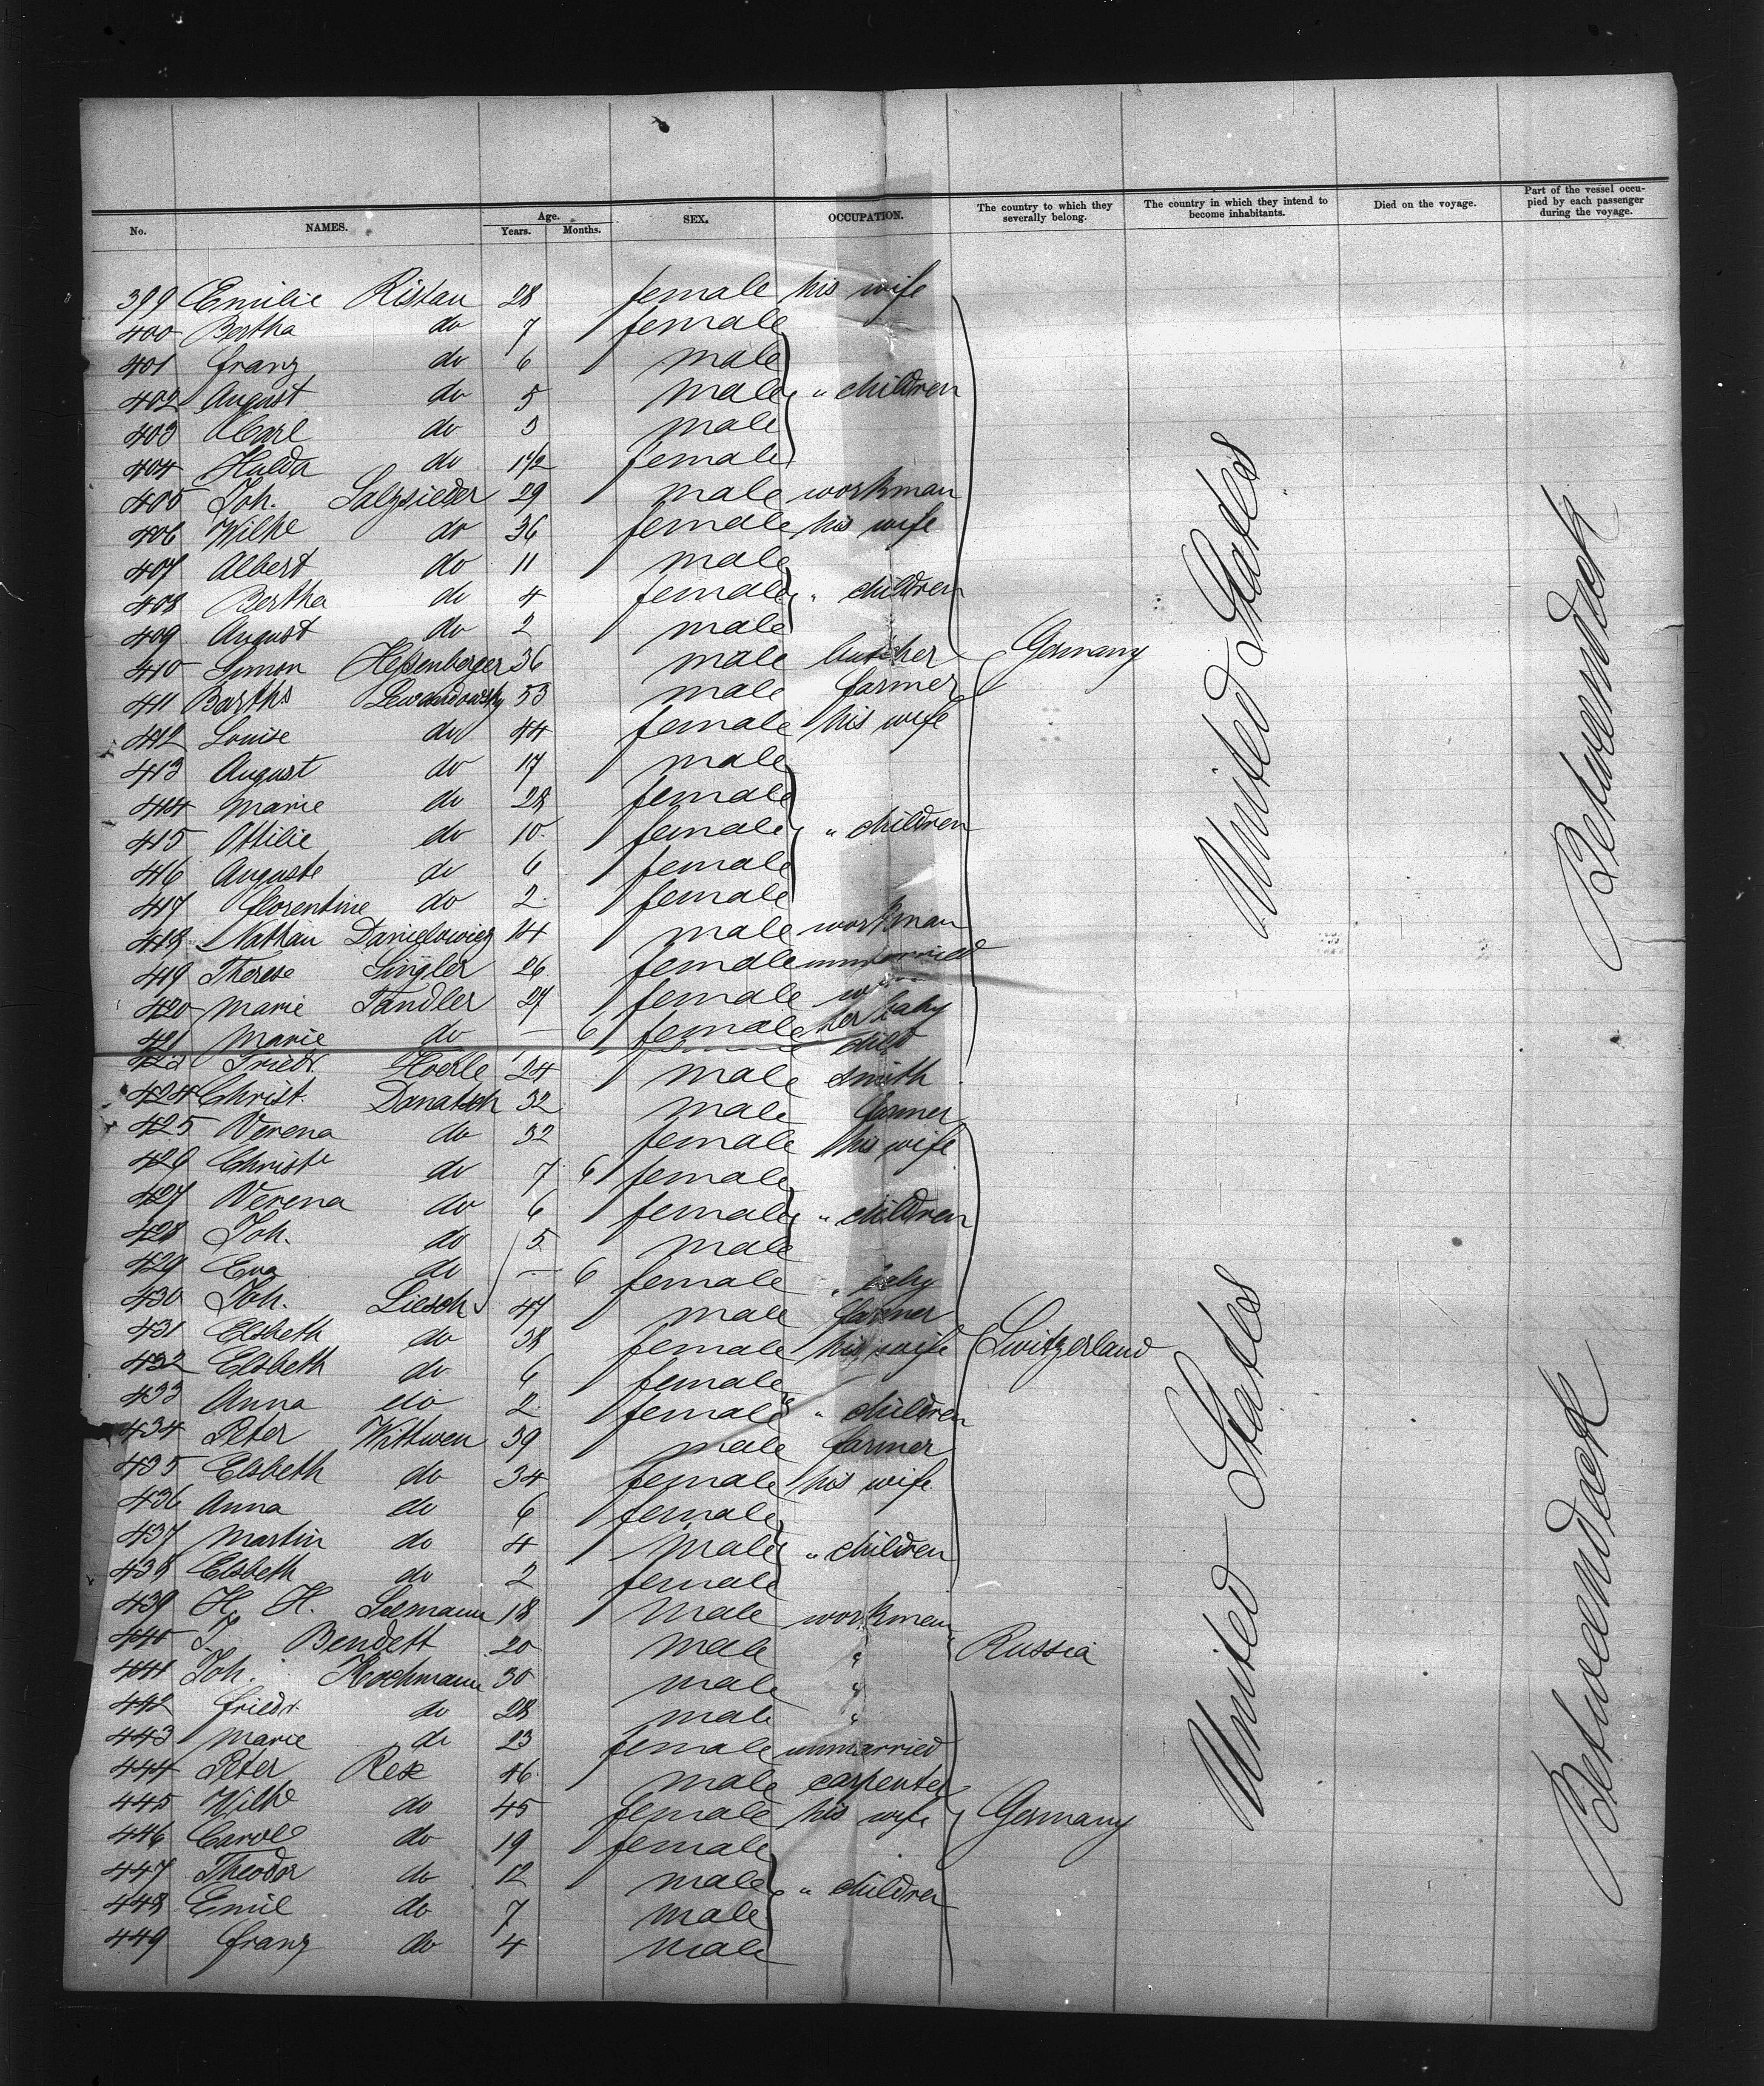 No. NAMES. Age. Years. Months. SEX. OCCUPATION. The country to which they severally belong. The country in which they intend to become inhabitants. Died on the voyage. Part of the vessel occupied by each passenger during the voyage.
399 Emilie Ristau 28 female his wife
400 Bertha do 7 female
401 Franz do 6 male
402 August do 5 male " children
403 Carl do 3 male
404 Hulda do 1 1/2 female
405 Joh. Salzsieder 29 male workman
406 Wilhe do 36 female his wife
407 Albert do 11 male
408 Bertha do 4 female " children
409 August do 2 male
410 Simon Heßenberger 36 male butcher Germany
411 Barths Lewandowsky 53 male farmer
412 Louise do 44 female his wife
413 August do 17 male
414 Marie do 28 female
415 Ottilie do 10 female " children
416 Auguste do 6 female
417 Florentine do 2 female
418 Nathan Danielowicz 14 male workman
419 Therese Singler 26 female unmarried
420 Marie Tandler 27 female
421 Marie do — 6 female her baby
child
423 Friedr. Hoerle 24 male smith
424 Christ. Danatsch 32 male farmer
425 Verena do 32 female his wife
426 Christe do 7 6 female
427 Verena do 6 female " children
428 Joh. do 5 male
429 Eva do — 6 female " baby
430 Joh. Liesch 47 male farmer
431 Elsbeth do 38 female his wife Switzerland
432 Elsbeth do 6 female
433 Anna do 2 female " children
434 Peter Wittwen 39 male farmer
435 Elsbeth do 34 female his wife
436 Anna do 6 female
437 Martin do 4 male " children
438 Elsbeth do 2 female
439 H. H. Seemann 18 male workman
440 Bendett 20 male " Russia
441 Joh. Kochmann 30 male "
442 Friedr. do 28 male "
443 Marie do 23 female unmarried
444 Peter Rex 46 male carpenter
445 Wilhe do 45 female his wife Germany
446 Carole do 19 female
447 Theodor do 12 male " children
448 Emil do 7 male
449 Franz do 4 male
United States
Betweendeck
United States
Betweendeck